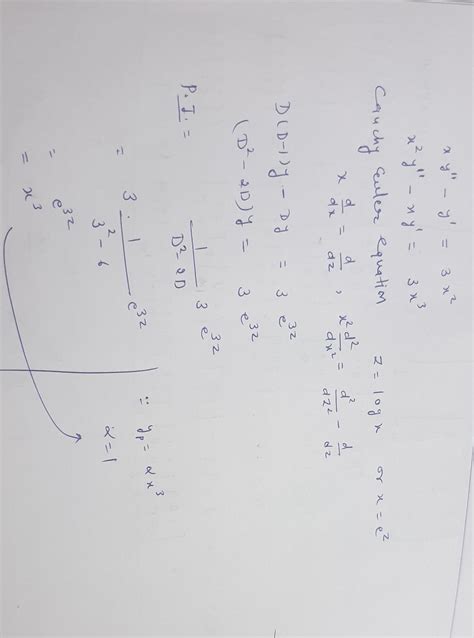 xy'' - y' = 3x²
x²y'' - xy' = 3x³
Cauchy Euler equation z = log x or x = e^z
x d/dx = d/dz , x²d²/dx² = d²/dz² - d/dz
D(D-1)y - Dy = 3 e^{3z}
(D² - 2D)y = 3 e^{3z}
P.I. = 1/(D² - 2D) 3 e^{3z}
= 3 · 1/(3² - 6) e^{3z}
= e^{3z}
= x³
∵ y_p = α x³
α = 1